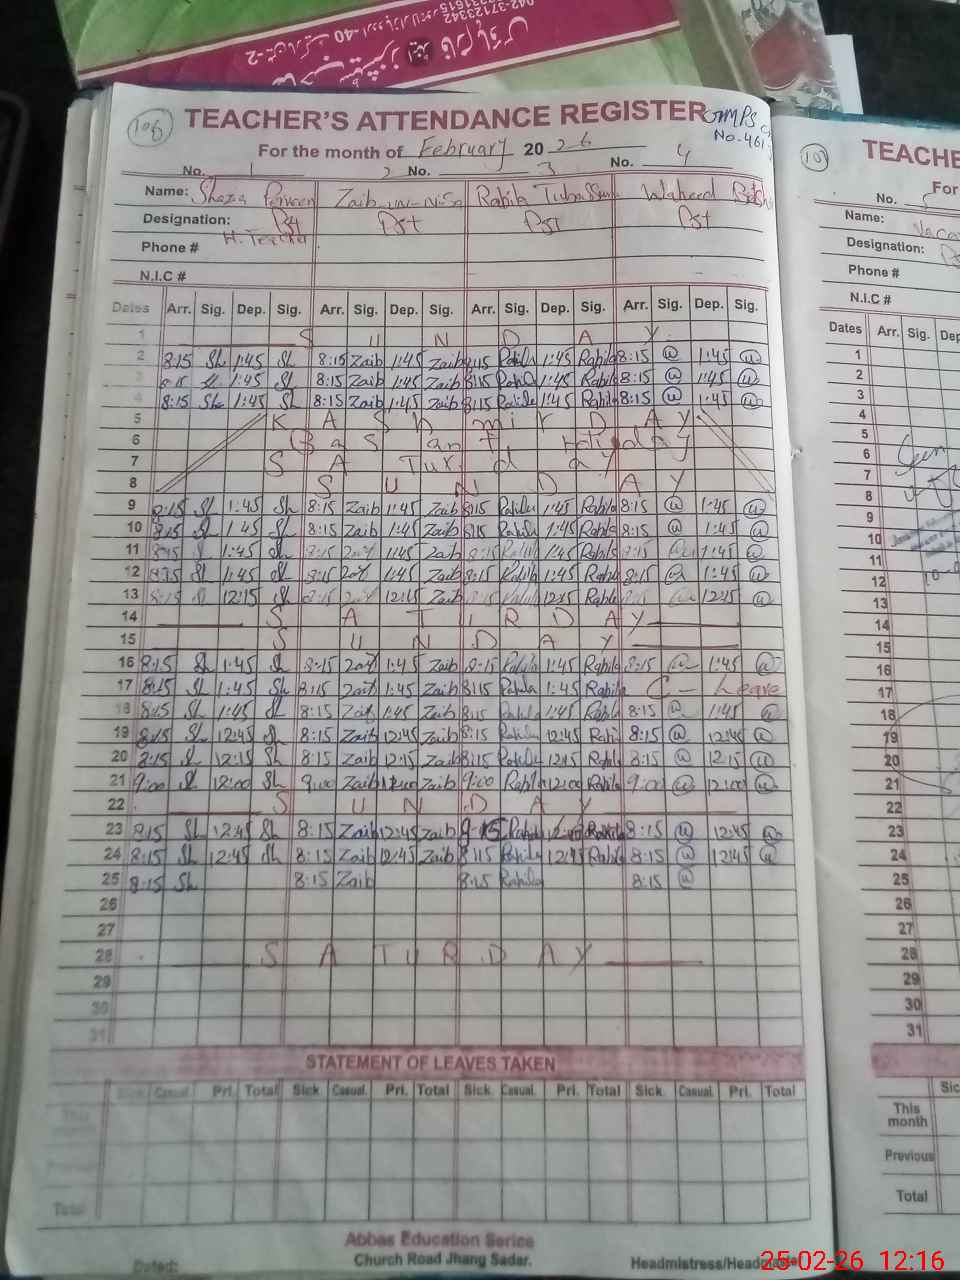 042-37123342
TEACHER'S ATTENDANCE REGISTER
GMMPS
No-461
106
For the month of February 2026
No. 1 No. 2 No. 3 No. 4
Name: Shaza Parveen Zaib-un-Nisa Rabila Tubassum Waheed
Designation: Pst Pst Pst Pst
H. Teacher
Phone #
N.I.C #
Dates Arr. Sig. Dep. Sig. Arr. Sig. Dep. Sig. Arr. Sig. Dep. Sig. Arr. Sig. Dep. Sig.
1 SUNDAY
2 8:15 Sh 1:45 Sh 8:15 Zaib 1:45 Zaib 8:15 Rabila 1:45 Rabila 8:15 W 1:45 W
3 8:15 Sh 1:45 Sh 8:15 Zaib 1:45 Zaib 8:15 Rabila 1:45 Rabila 8:15 W 1:45 W
4 8:15 Sh 1:45 Sh 8:15 Zaib 1:45 Zaib 8:15 Rabila 1:45 Rabila 8:15 W 1:45 W
5 Kashmir DAY
6 Basant holiday
7 SATurday
8 SUNDAY
9 8:15 Sh 1:45 Sh 8:15 Zaib 1:45 Zaib 8:15 Rabila 1:45 Rabila 8:15 W 1:45 W
10 8:15 Sh 1:45 Sh 8:15 Zaib 1:45 Zaib 8:15 Rabila 1:45 Rabila 8:15 W 1:45 W
11 8:15 Sh 1:45 Sh 8:15 Zaib 1:45 Zaib 8:15 Rabila 1:45 Rabila 8:15 W 1:45 W
12 8:15 Sh 1:45 Sh 8:15 Zaib 1:45 Zaib 8:15 Rabila 1:45 Rabila 8:15 W 1:45 W
13 8:15 Sh 12:15 Sh 8:15 Zaib 12:15 Zaib 8:15 Rabila 12:15 Rabila 8:15 W 12:15 W
14 SATURDAY
15 SUNDAY
16 8:15 Sh 1:45 Sh 8:15 Zaib 1:45 Zaib 8:15 Rabila 1:45 Rabila 8:15 W 1:45 W
17 8:15 Sh 1:45 Sh 8:15 Zaib 1:45 Zaib 8:15 Rabila 1:45 Rabila C - Leave
18 8:15 Sh 1:45 Sh 8:15 Zaib 1:45 Zaib 8:15 Rabila 1:45 Rabila 8:15 W 1:45 W
19 8:15 Sh 12:45 Sh 8:15 Zaib 12:45 Zaib 8:15 Rabila 12:45 Rabila 8:15 W 12:45 W
20 8:15 Sh 12:15 Sh 8:15 Zaib 12:15 Zaib 8:15 Rabila 12:15 Rabila 8:15 W 12:15 W
21 9:00 Sh 12:00 Sh 9:00 Zaib 12:00 Zaib 9:00 Rabila 12:00 Rabila 9:00 W 12:00 W
22 SUNDAY
23 8:15 Sh 12:45 Sh 8:15 Zaib 12:45 Zaib 8:15 Rabila 12:45 Rabila 8:15 W 12:45 W
24 8:15 Sh 12:45 Sh 8:15 Zaib 12:45 Zaib 8:15 Rabila 12:45 Rabila 8:15 W 12:45 W
25 8:15 Sh 8:15 Zaib 8:15 Rabila 8:15 W
26
27
28 SATURDAY
29
30
31
STATEMENT OF LEAVES TAKEN
Sick Casual. Pri. Total Sick. Casual. Pri. Total Sick. Casual. Pri. Total Sick. Casual. Pri. Total
This
Total
Abbas Education Serice
Church Road Jhang Sadar.
Dated: Headmistress/Headmaster
TEACHE
For
No. 5
Name:
Designation:
Phone #
N.I.C #
Dates Arr. Sig. Dep
1
2
3
4
5
6
7
8
9
10
11
12
13
14
15
16
17
18
19
20
21
22
23
24
25
26
27
28
29
30
31
Sic
This month
Previous
Total
25-02-26 12:16